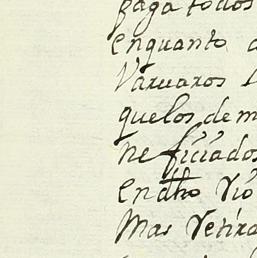 paga todos
enquanto a
Varuaros
quelos de m
ne ficiados
en dho Rio
Mas Retira